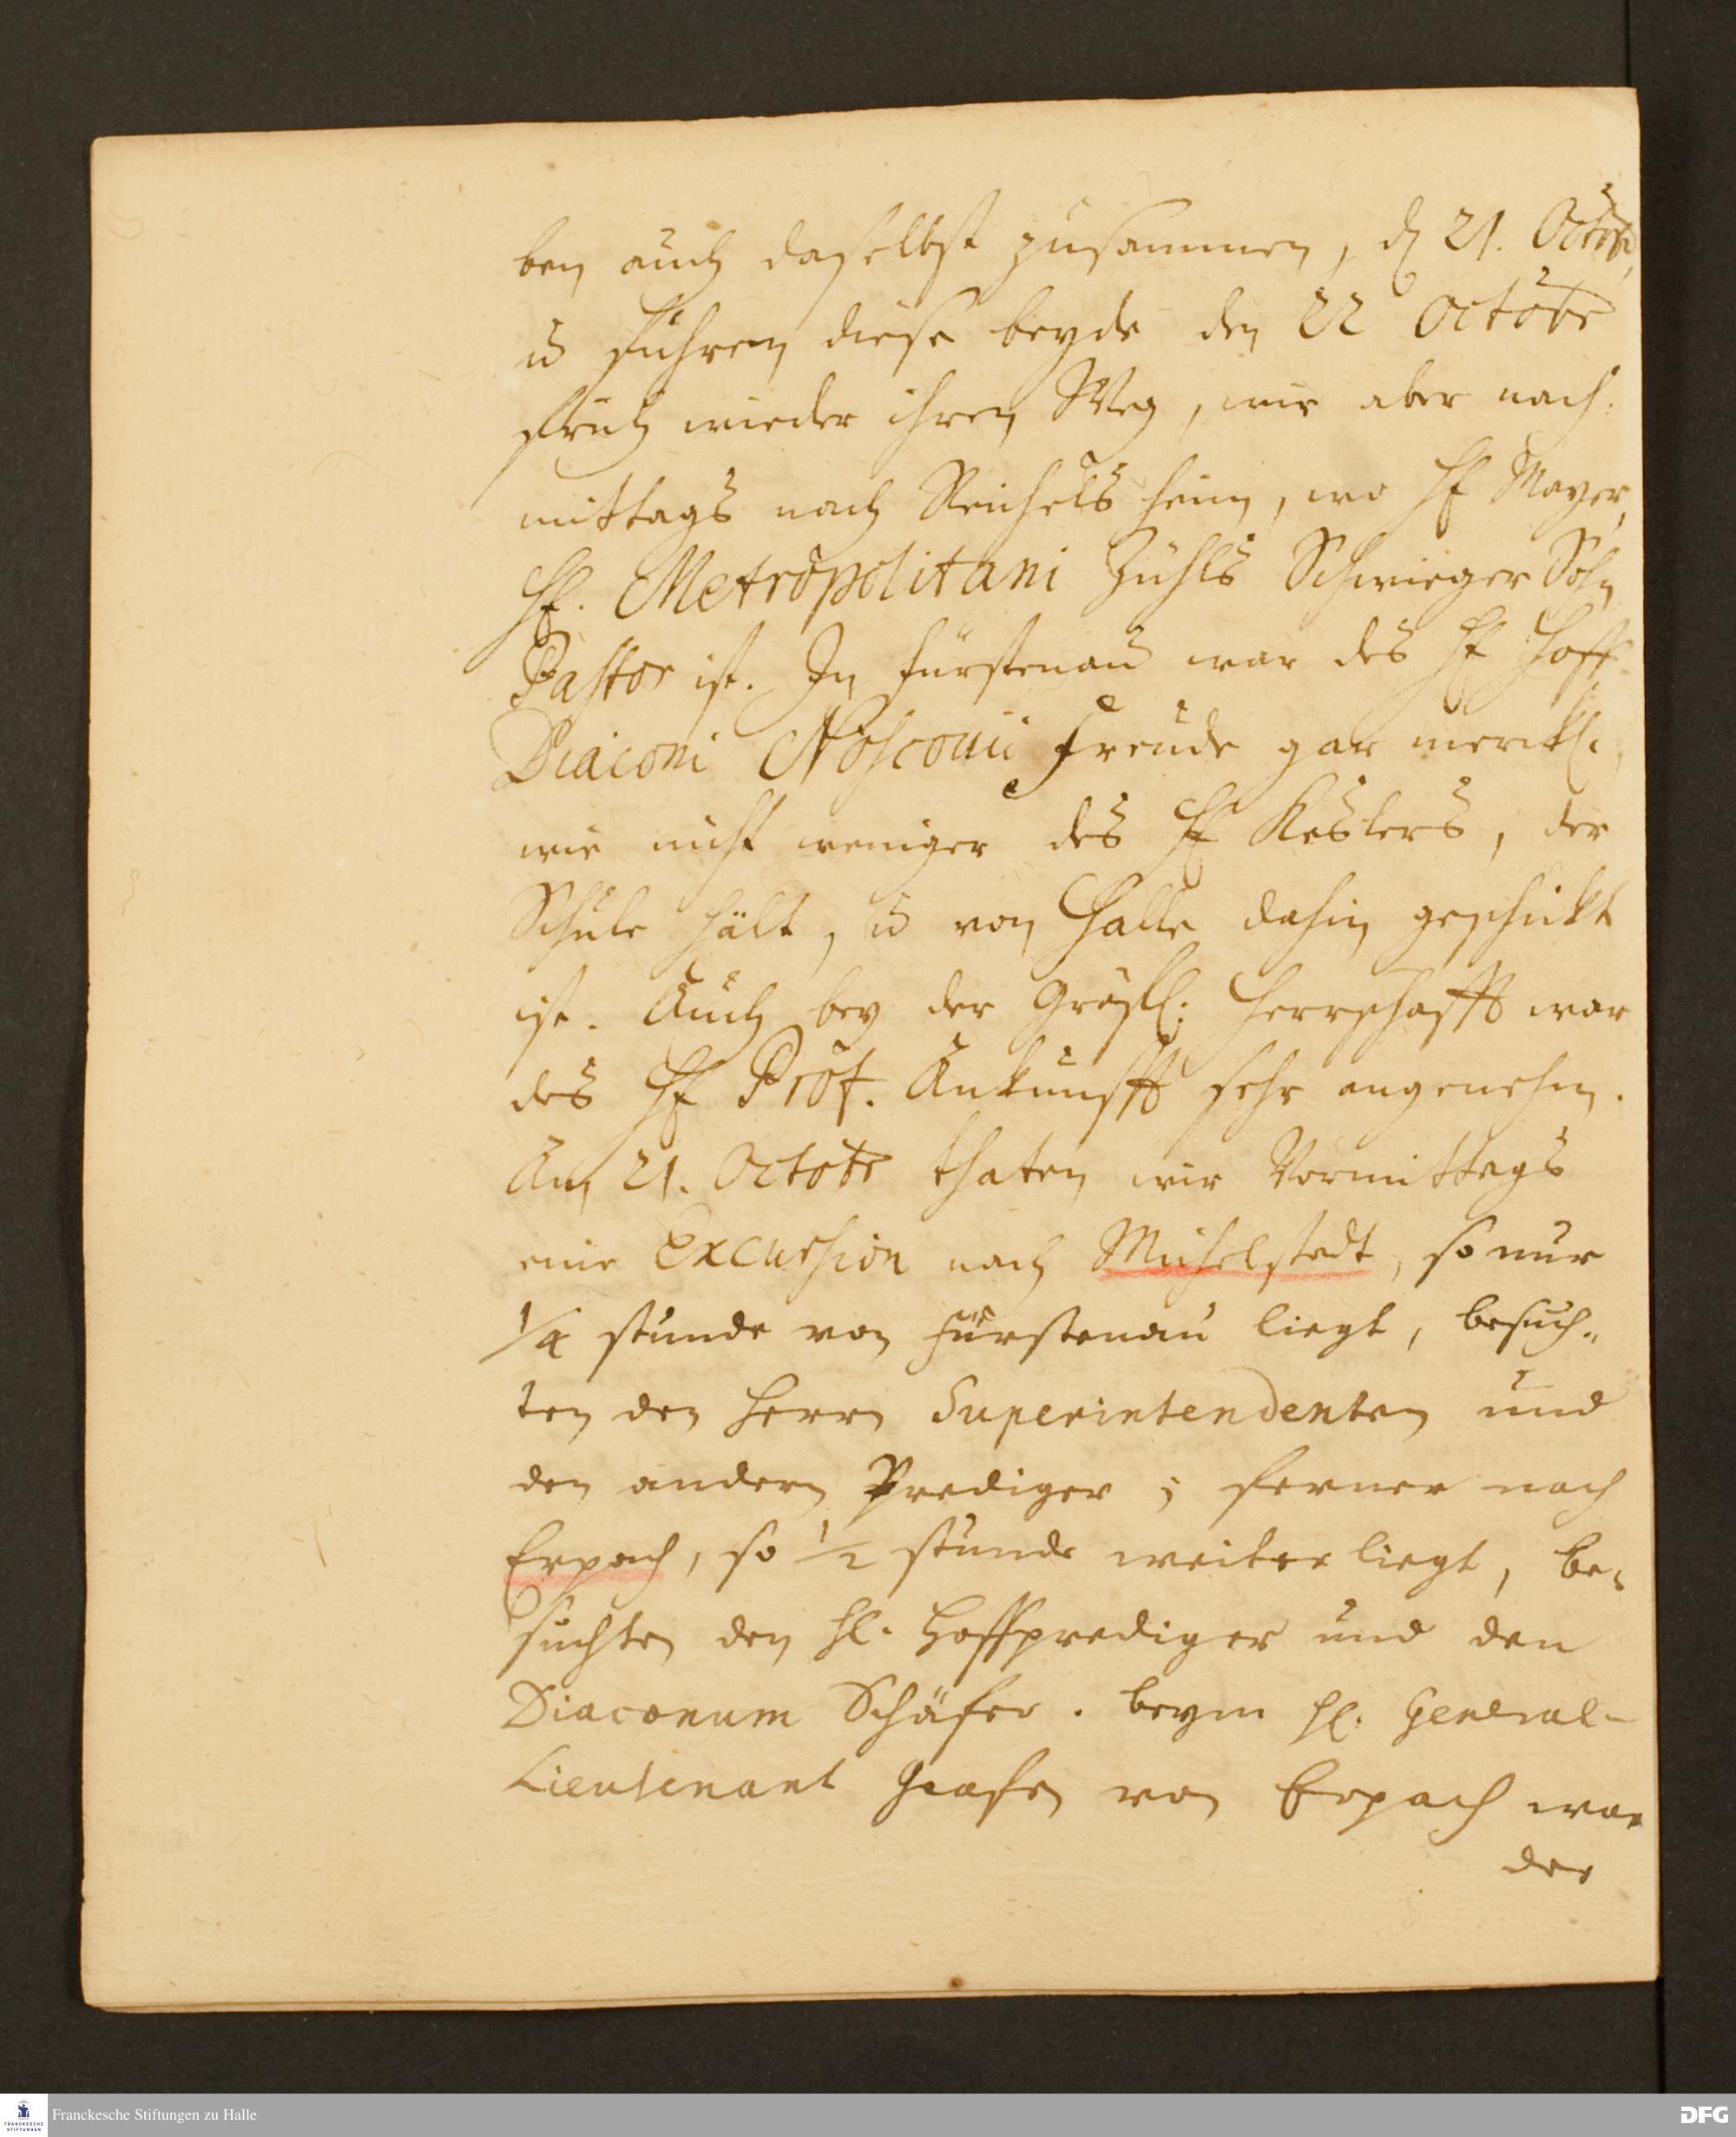 ben auch daselbst zusammen, d 21. Octobr,
u fuhren diese beyde den 22 Octobr
früh wieder ihren Weg, wir aber nach-
mittags nach Reichelsheim, wo H Mayer,
H. Metropolitani Zühls Schwieger Sohn
Pastor ist. In Fürstenau war des H Hoff-
Diaconi Freude gar merckl.
wie nicht weniger des H Keslers, der
Schule hält, u von Halle dahin geschickt
ist. Auch bey der Gräfl: Herrschafft war
des H Prof. Ankunfft sehr angenehm.
Am 21. Octobr thaten wir Vormittags
eine Excursion nach Michelstedt, so nur
1/4 stunde von Fürstenau liegt, besuch-
ten den Herrn Superintendenten und
den andern Prediger; ferner nach
Erpach, so 1/2 stunde weiter liegt, be-
suchten den H. Hoffprediger und den
Diaconum Schäfer. beym H. General-
Lieutenant Grafen von Erpach war
der
Franckesche Stiftungen zu Halle
FRANCKESCHE
STIFTUNGEN
DFG